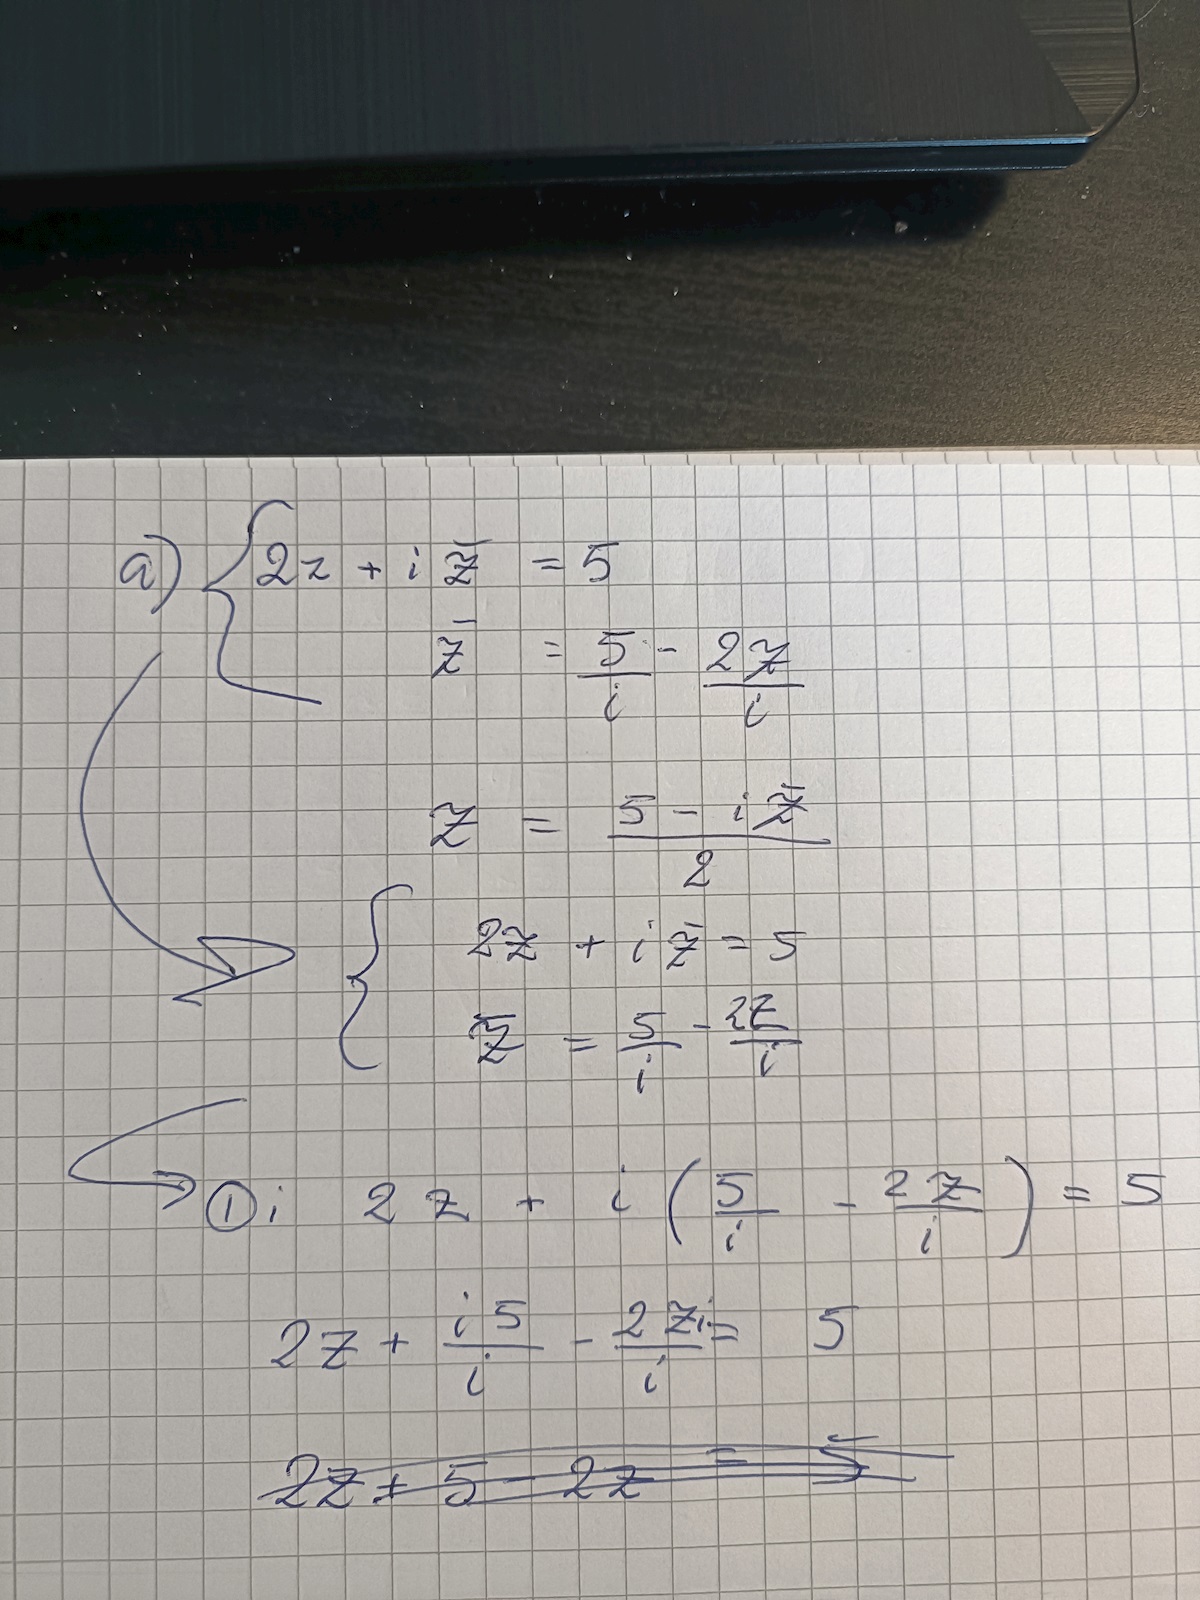 a) { 2z + i z̄ = 5
z̄ = 5/i - 2z/i
z = (5 - i z̄)/2
{ 2z + i z̄ = 5
z̄ = 5/i - 2z/i
① i 2z + i (5/i - 2z/i) = 5
2z + i5/i - 2zi/i = 5
2z + 5 - 2z = 5